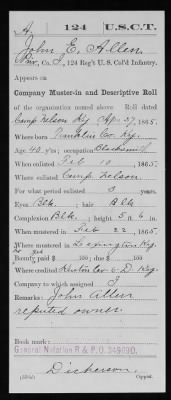 A. 124 U.S.C.T.
John E. Allen
Co. I, 124 Reg't U. S. Col'd Infantry.
Appears on
Company Muster-in and Descriptive Roll
of the organization named above. Roll dated
Camp Nelson Ky. Apr. 27, 1865.
Where born Franklin Co. Ky.
Age 40 y'rs; occupation Blacksmith
When enlisted Feb 10, 1865.
Where enlisted Camp Nelson.
For what period enlisted 3 years.
Eyes Blk.; hair Blk
Complexion Blk; height 5 ft. 6 in.
When mustered in Feb 22, 1865.
Where mustered in Lexington Ky.
Bounty paid $ 100; due $ 100
Where credited
Company to which assigned I
Remarks: John Allen
reputed owner.
Book mark:
General Notation R & P.O. 349090.
Dickerson.
Copyist.